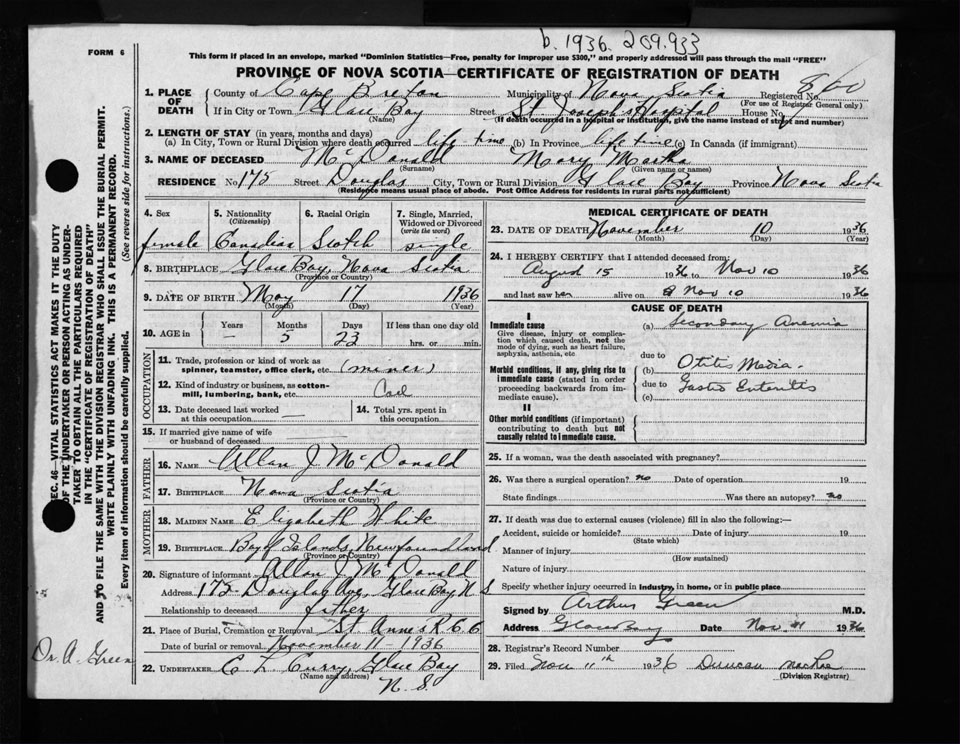 b. 1936. 209.933
FORM 6
This form if placed in an envelope, marked "Dominion Statistics—Free, penalty for improper use $300," and properly addressed will pass through the mail "FREE"
PROVINCE OF NOVA SCOTIA—CERTIFICATE OF REGISTRATION OF DEATH
1. PLACE OF DEATH County of Cape Breton Municipality of Nova Scotia Registered No.
(For use of Registrar General only)
If in City or Town Glace Bay Street St. Joseph's Hospital House No.
(Name) (If death occurred in a hospital or institution, give the name instead of street and number)
2. LENGTH OF STAY (in years, months and days)
(a) In City, Town or Rural Division where death occurred life time (b) In Province life time (c) In Canada (if immigrant)
3. NAME OF DECEASED McDonald Mary Martha
(Surname) (Given name or names)
RESIDENCE No 175 Street Douglas City, Town or Rural Division Glace Bay Province Nova Scotia
(Residence means usual place of abode. Post Office Address for residents in rural parts not sufficient)
4. Sex 5. Nationality (Citizenship) 6. Racial Origin 7. Single, Married, Widowed or Divorced (write the word)
female Canadian Scotch single
8. BIRTHPLACE Glace Bay, Nova Scotia
(Province or Country)
9. DATE OF BIRTH May 17 1936
(Month) (Day) (Year)
10. AGE in Years Months Days If less than one day old
— 5 23 hrs. or min.
OCCUPATION
11. Trade, profession or kind of work as spinner, teamster, office clerk, etc. (miner)
12. Kind of industry or business, as cotton-mill, lumbering, bank, etc. Coal
13. Date deceased last worked at this occupation — 14. Total yrs. spent in this occupation
15. If married give name of wife or husband of deceased
FATHER
16. NAME Allan J McDonald
17. BIRTHPLACE Nova Scotia
(Province or Country)
MOTHER
18. MAIDEN NAME Elizabeth White
19. BIRTHPLACE Bay of Islands, Newfoundland
(Province or Country)
20. Signature of informant Allan J McDonald
Address 175 Douglas Ave, Glace Bay N S
Relationship to deceased father
21. Place of Burial, Cremation or Removal St. Anne's R.C.C
Date of burial or removal November 11 - 1936
22. UNDERTAKER C L Curry, Glace Bay
(Name and address)
N. S.
MEDICAL CERTIFICATE OF DEATH
23. DATE OF DEATH November 10 1936
(Month) (Day) (Year)
24. I HEREBY CERTIFY that I attended deceased from:
August 15 1936 to Nov 10 1936
and last saw her alive on Nov 10 1936
CAUSE OF DEATH
I
Immediate cause (a) Secondary Anemia
Give disease, injury or complication which caused death, not the mode of dying, such as heart failure, asphyxia, asthenia, etc
due to
Morbid conditions, if any, giving rise to immediate cause (stated in order proceeding backwards from immediate cause).
(b) Otitis Media.
due to Gastro Enteritis
(c)
II
Other morbid conditions (if important) contributing to death but not causally related to immediate cause.
25. If a woman, was the death associated with pregnancy?
26. Was there a surgical operation? no Date of operation 19
State findings Was there an autopsy? no
27. If death was due to external causes (violence) fill in also the following:—
Accident, suicide or homicide? Date of injury 19
(State which)
Manner of injury
(How sustained)
Nature of injury
Specify whether injury occurred in industry, in home, or in public place
Signed by Arthur Green M.D.
Address Glace Bay Date Nov. 11 1936
28. Registrar's Record Number
29. Filed Nov 11th 1936 Duncan MacRae
(Division Registrar)
SEC. 46—VITAL STATISTICS ACT MAKES IT THE DUTY
OF THE UNDERTAKER OR PERSON ACTING AS UNDERTAKER TO OBTAIN ALL THE PARTICULARS REQUIRED
IN THE "CERTIFICATE OF REGISTRATION OF DEATH"
AND TO FILE THE SAME WITH THE DIVISION REGISTRAR WHO SHALL ISSUE THE BURIAL PERMIT.
WRITE PLAINLY WITH UNFADING INK. THIS IS A PERMANENT RECORD.
Every item of information should be carefully supplied. (See reverse side for instructions.)
Dr. A. Green